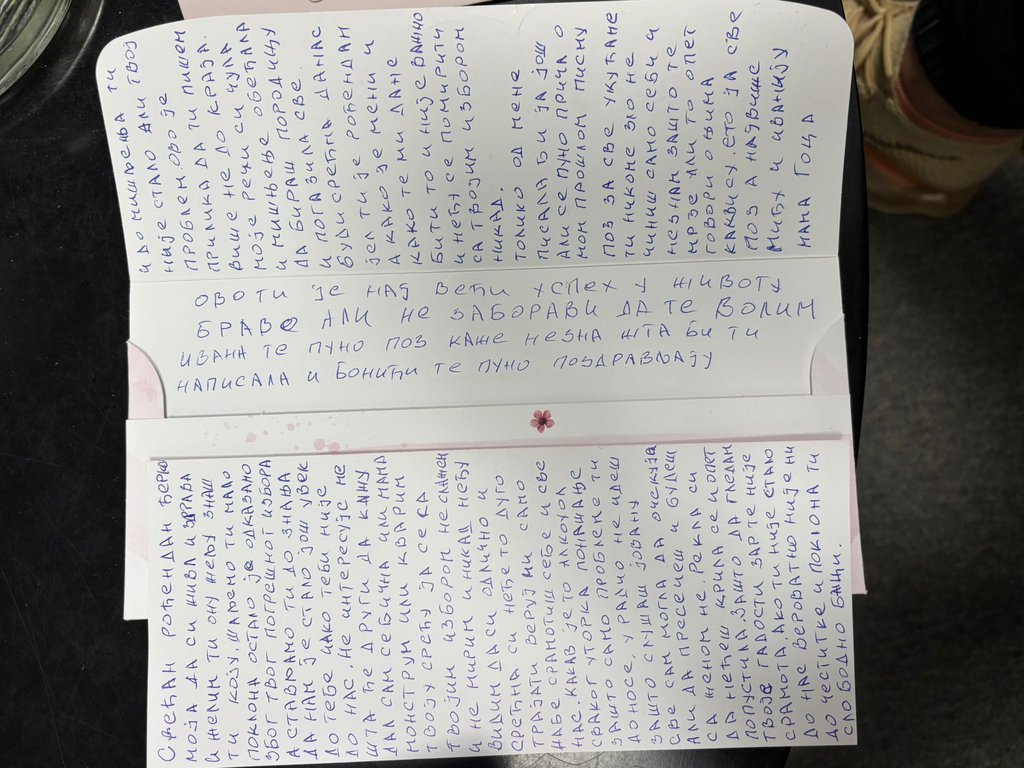 Срећан рођендан ћерко
моја да си жива и здрава
и желим ти ону жељу знаш
ти коју. Шаљемо ти мало
поклона остало је одказано
због твог погрешног избора
а стављамо ти до знања
да нам је стало још увек
до тебе иако теби није
до нас. Не интересује ме
шта ће други да кажу
дал сам себична или мама
монструм или кварим
твоју срећу ја се са
твојим избором не слажем
и не мирим и никад нећу
видим да си одлично и
срећна си неће то дуго
трајати веруј ми само
набе срамотиш себе и све
нас. какав је то алкохол
сваког уторка понашање
зашто само проблеме ти
доносе, у радио не идеш
зашто слушаш Јовану
све сам могла да очекујем
али да пресечеш и будеш
са женом не. Рекла си
да нећеш крила се и опет
попустила, зашто да гледам
твоје гадости зар те није
срамота. Ако ти није стало
до нас вероватно није ни
до честитке и поклона ти
слободно баци.
ово ти је нај већи успех у животу
браво али не заборави да те волим
ивана те пуно поз каже незна шта би ти
написала и Бонићи те пуно поздрављају
и до мишљења ти
није стало али твој
проблем. ово је
прилика да ти пишем
више не до краја.
моје речи си чула
и мишљење обећала
да бираш породицу
и погазила све.
буди срећна данас
јел ти је рођендан
а како је мени и
како те ми дане
бити то и није важно
и нећу се помирити
са твојим избором
никад.
толико од мене
писала би и ја још
али се пуно прича о
мом прошлом писму
поз за све укућане
ти никоме зло не
чиниш само себи и
незнам зашто те
мрзе или то опет
говори о њима
какви су. Ето ја све
поз а највише
Миђу и иванију
мама Гоца